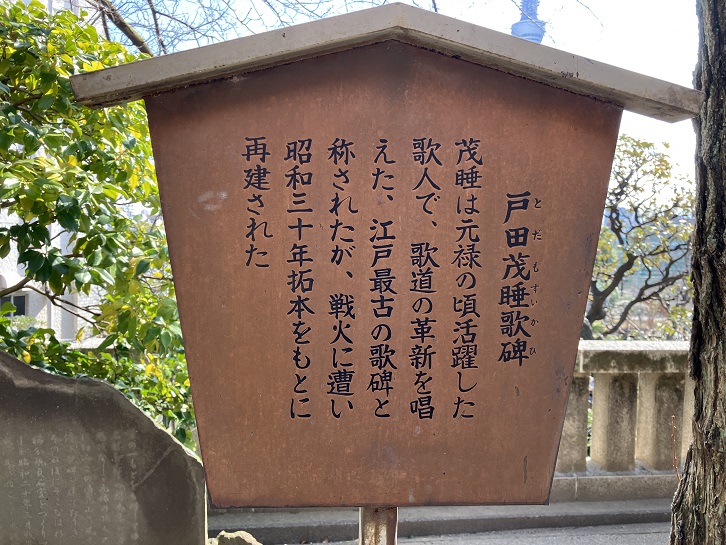 戸田茂睡歌碑
とだもすいかひ
茂睡は元禄の頃活躍した
歌人で、歌道の革新を唱
えた、江戸最古の歌碑と
称されたが、戦火に遭い
昭和三十年拓本をもとに
再建された